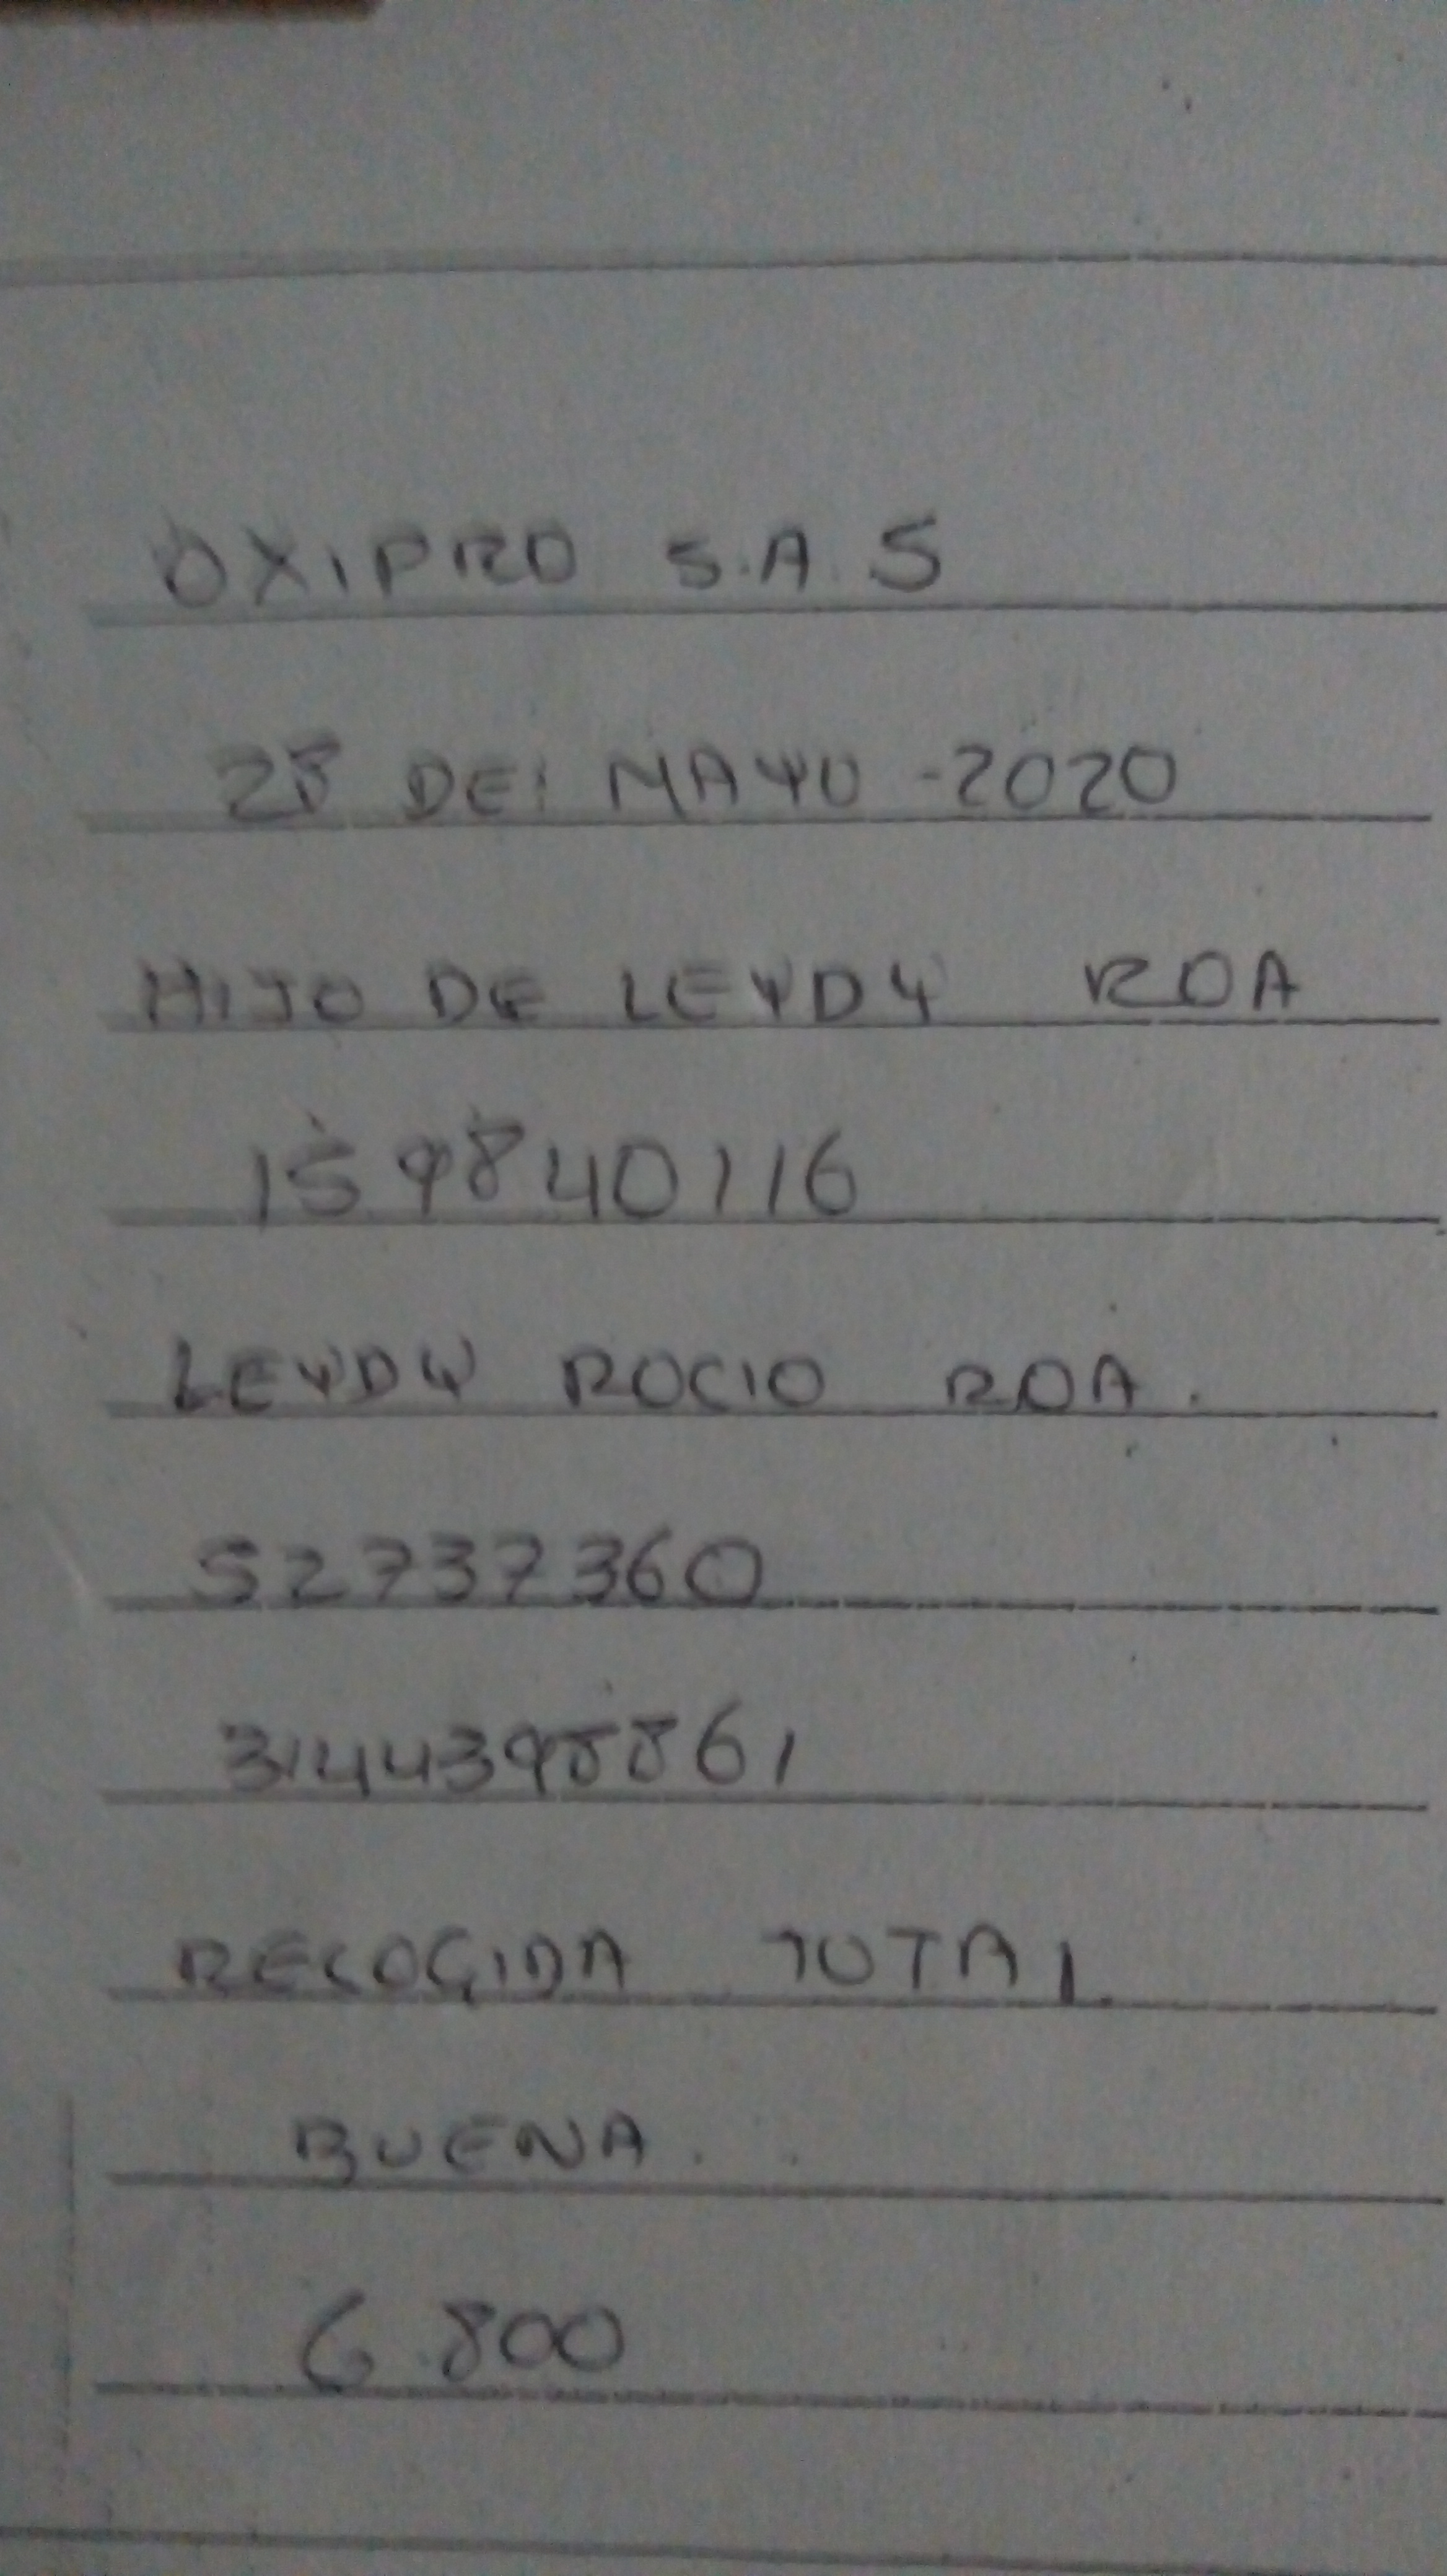 OXIPRO S.A.S
28 DE: MAYO -2020
HIJO DE LEYDY ROA
159840116
LEYDY ROCIO ROA.
52737360
3144398861
RECOGIDA TOTAL
BUENA.
6.800